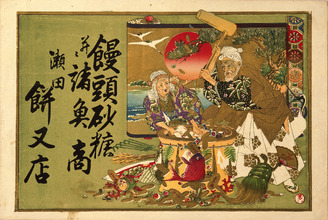 饅頭砂糖
并諸魚商
瀬田
餅又店